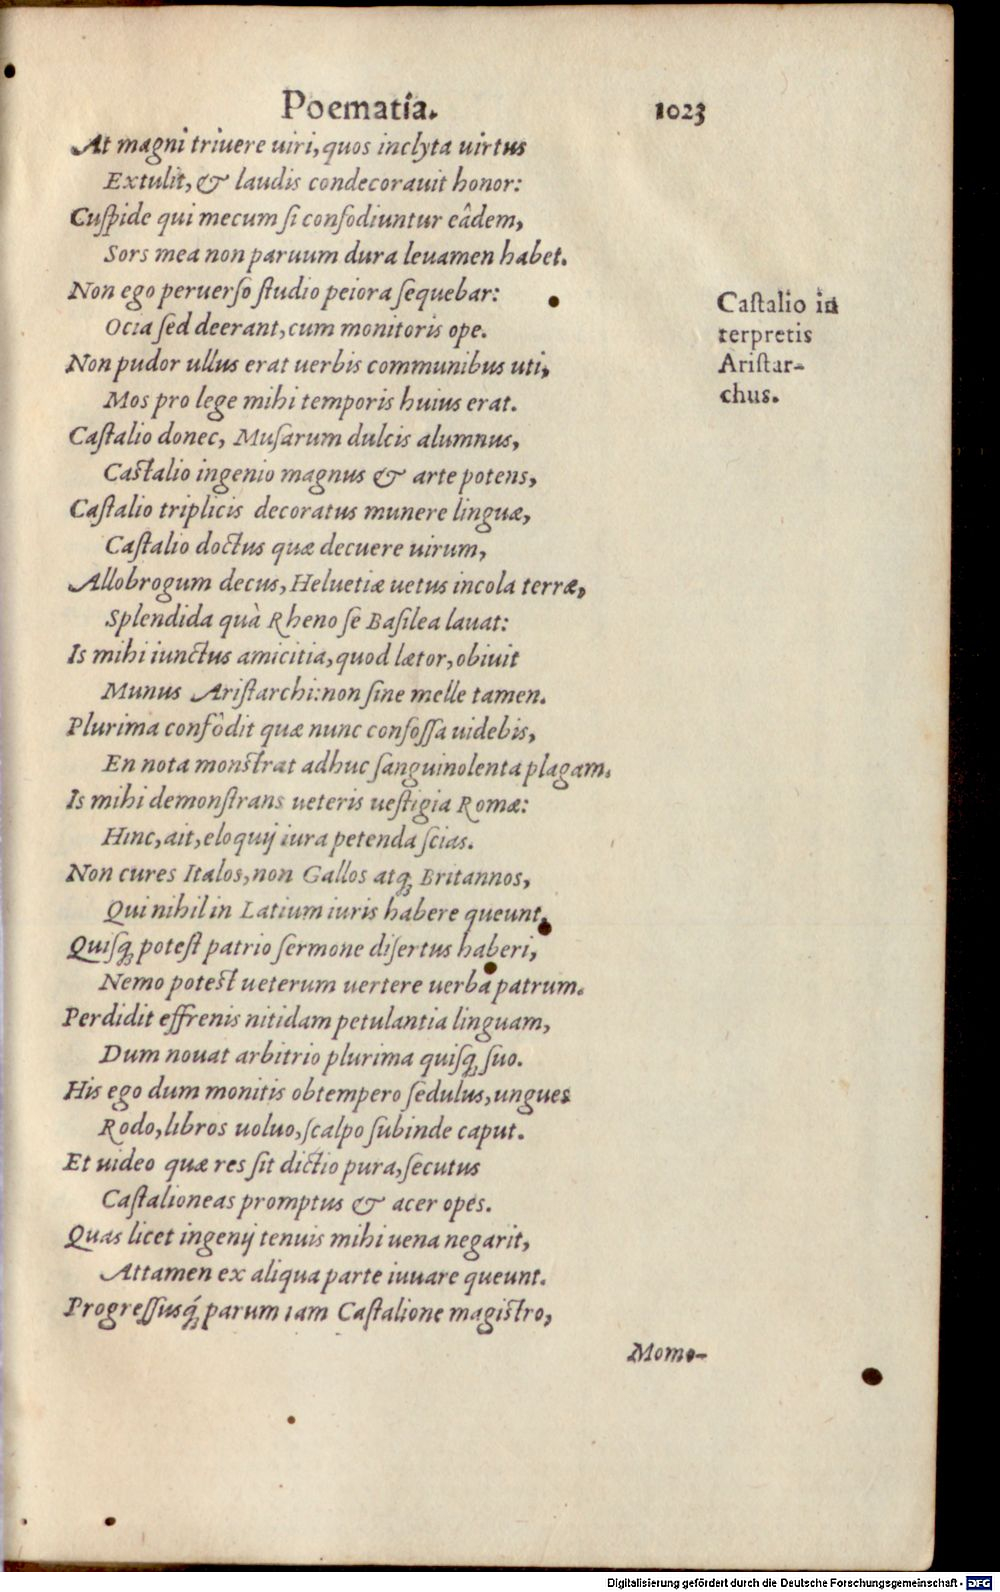 Poematia. 1023
At magni triuere uiri, quos inclyta uirtus
Extulit, & laudis condecorauit honor:
Cuspide qui mecum si confodiuntur eâdem,
Sors mea non paruum dura leuamen habet.
Non ego peruerso studio peiora sequebar:
Ocia sed deerant, cum monitoris ope.
Non pudor ullus erat uerbis communibus uti,
Mos pro lege mihi temporis huius erat.
Castalio donec, Musarum dulcis alumnus,
Castalio ingenio magnus & arte potens,
Castalio triplicis decoratus munere linguæ,
Castalio doctus quæ decuere uirum,
Allobrogum decus, Heluetiæ uetus incola terræ,
Splendida quà Rheno se Basilea lauat:
Is mihi iunctus amicitia, quod lætor, obiuit
Munus Aristarchi: non sine melle tamen.
Plurima confôdit quæ nunc confossa uidebis,
En nota monstrat adhuc sanguinolenta plagam.
Is mihi demonstrans ueteris uestigia Romæ:
Hinc, ait, eloquij iura petenda scias.
Non cures Italos, non Gallos atq; Britannos,
Qui nihil in Latium iuris habere queunt.
Quisq; potest patrio sermone disertus haberi,
Nemo potest ueterum uertere uerba patrum.
Perdidit effrenis nitidam petulantia linguam,
Dum nouat arbitrio plurima quisq; suo.
His ego dum monitis obtempero sedulus, ungues
Rodo, libros uoluo, scalpo subinde caput.
Et uideo quæ res sit dictio pura, secutus
Castalioneas promptus & acer opes.
Quas licet ingenij tenuis mihi uena negarit,
Attamen ex aliqua parte iuuare queunt.
Progressusq́; parum iam Castalione magistro,
Momo-
Castalio in
terpretis
Aristar-
chus.
Digitalisierung gefördert durch die Deutsche Forschungsgemeinschaft - DFG